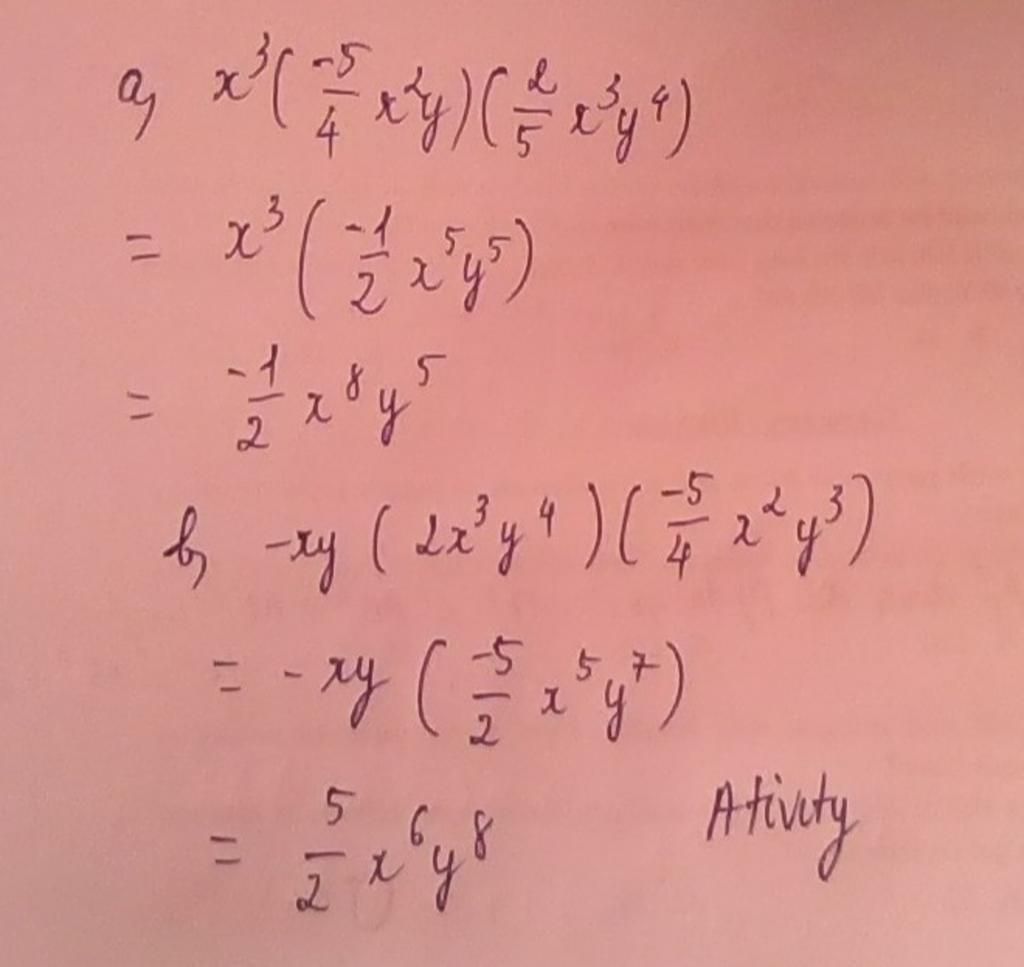 a, x³(-5/4 x²y)(2/5 x³y⁴)
= x³(-1/2 x⁵y⁵)
= -1/2 x⁸y⁵
b, -xy(2x³y⁴)(-5/4 x²y³)
= -xy(-5/2 x⁵y⁷)
= 5/2 x⁶y⁸ Ativity